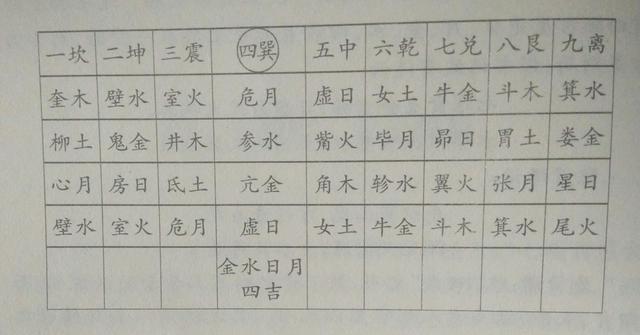 一坎 二坤 三震 四巽 五中 六乾 七兑 八艮 九离
奎木 壁水 室火 危月 虚日 女土 牛金 斗木 箕水
柳土 鬼金 井木 参水 觜火 毕月 昴日 胃土 娄金
心月 房日 氐土 亢金 角木 轸水 翼火 张月 星日
壁水 室火 危月 虚日 女土 牛金 斗木 箕水 尾火
金水日月
四吉